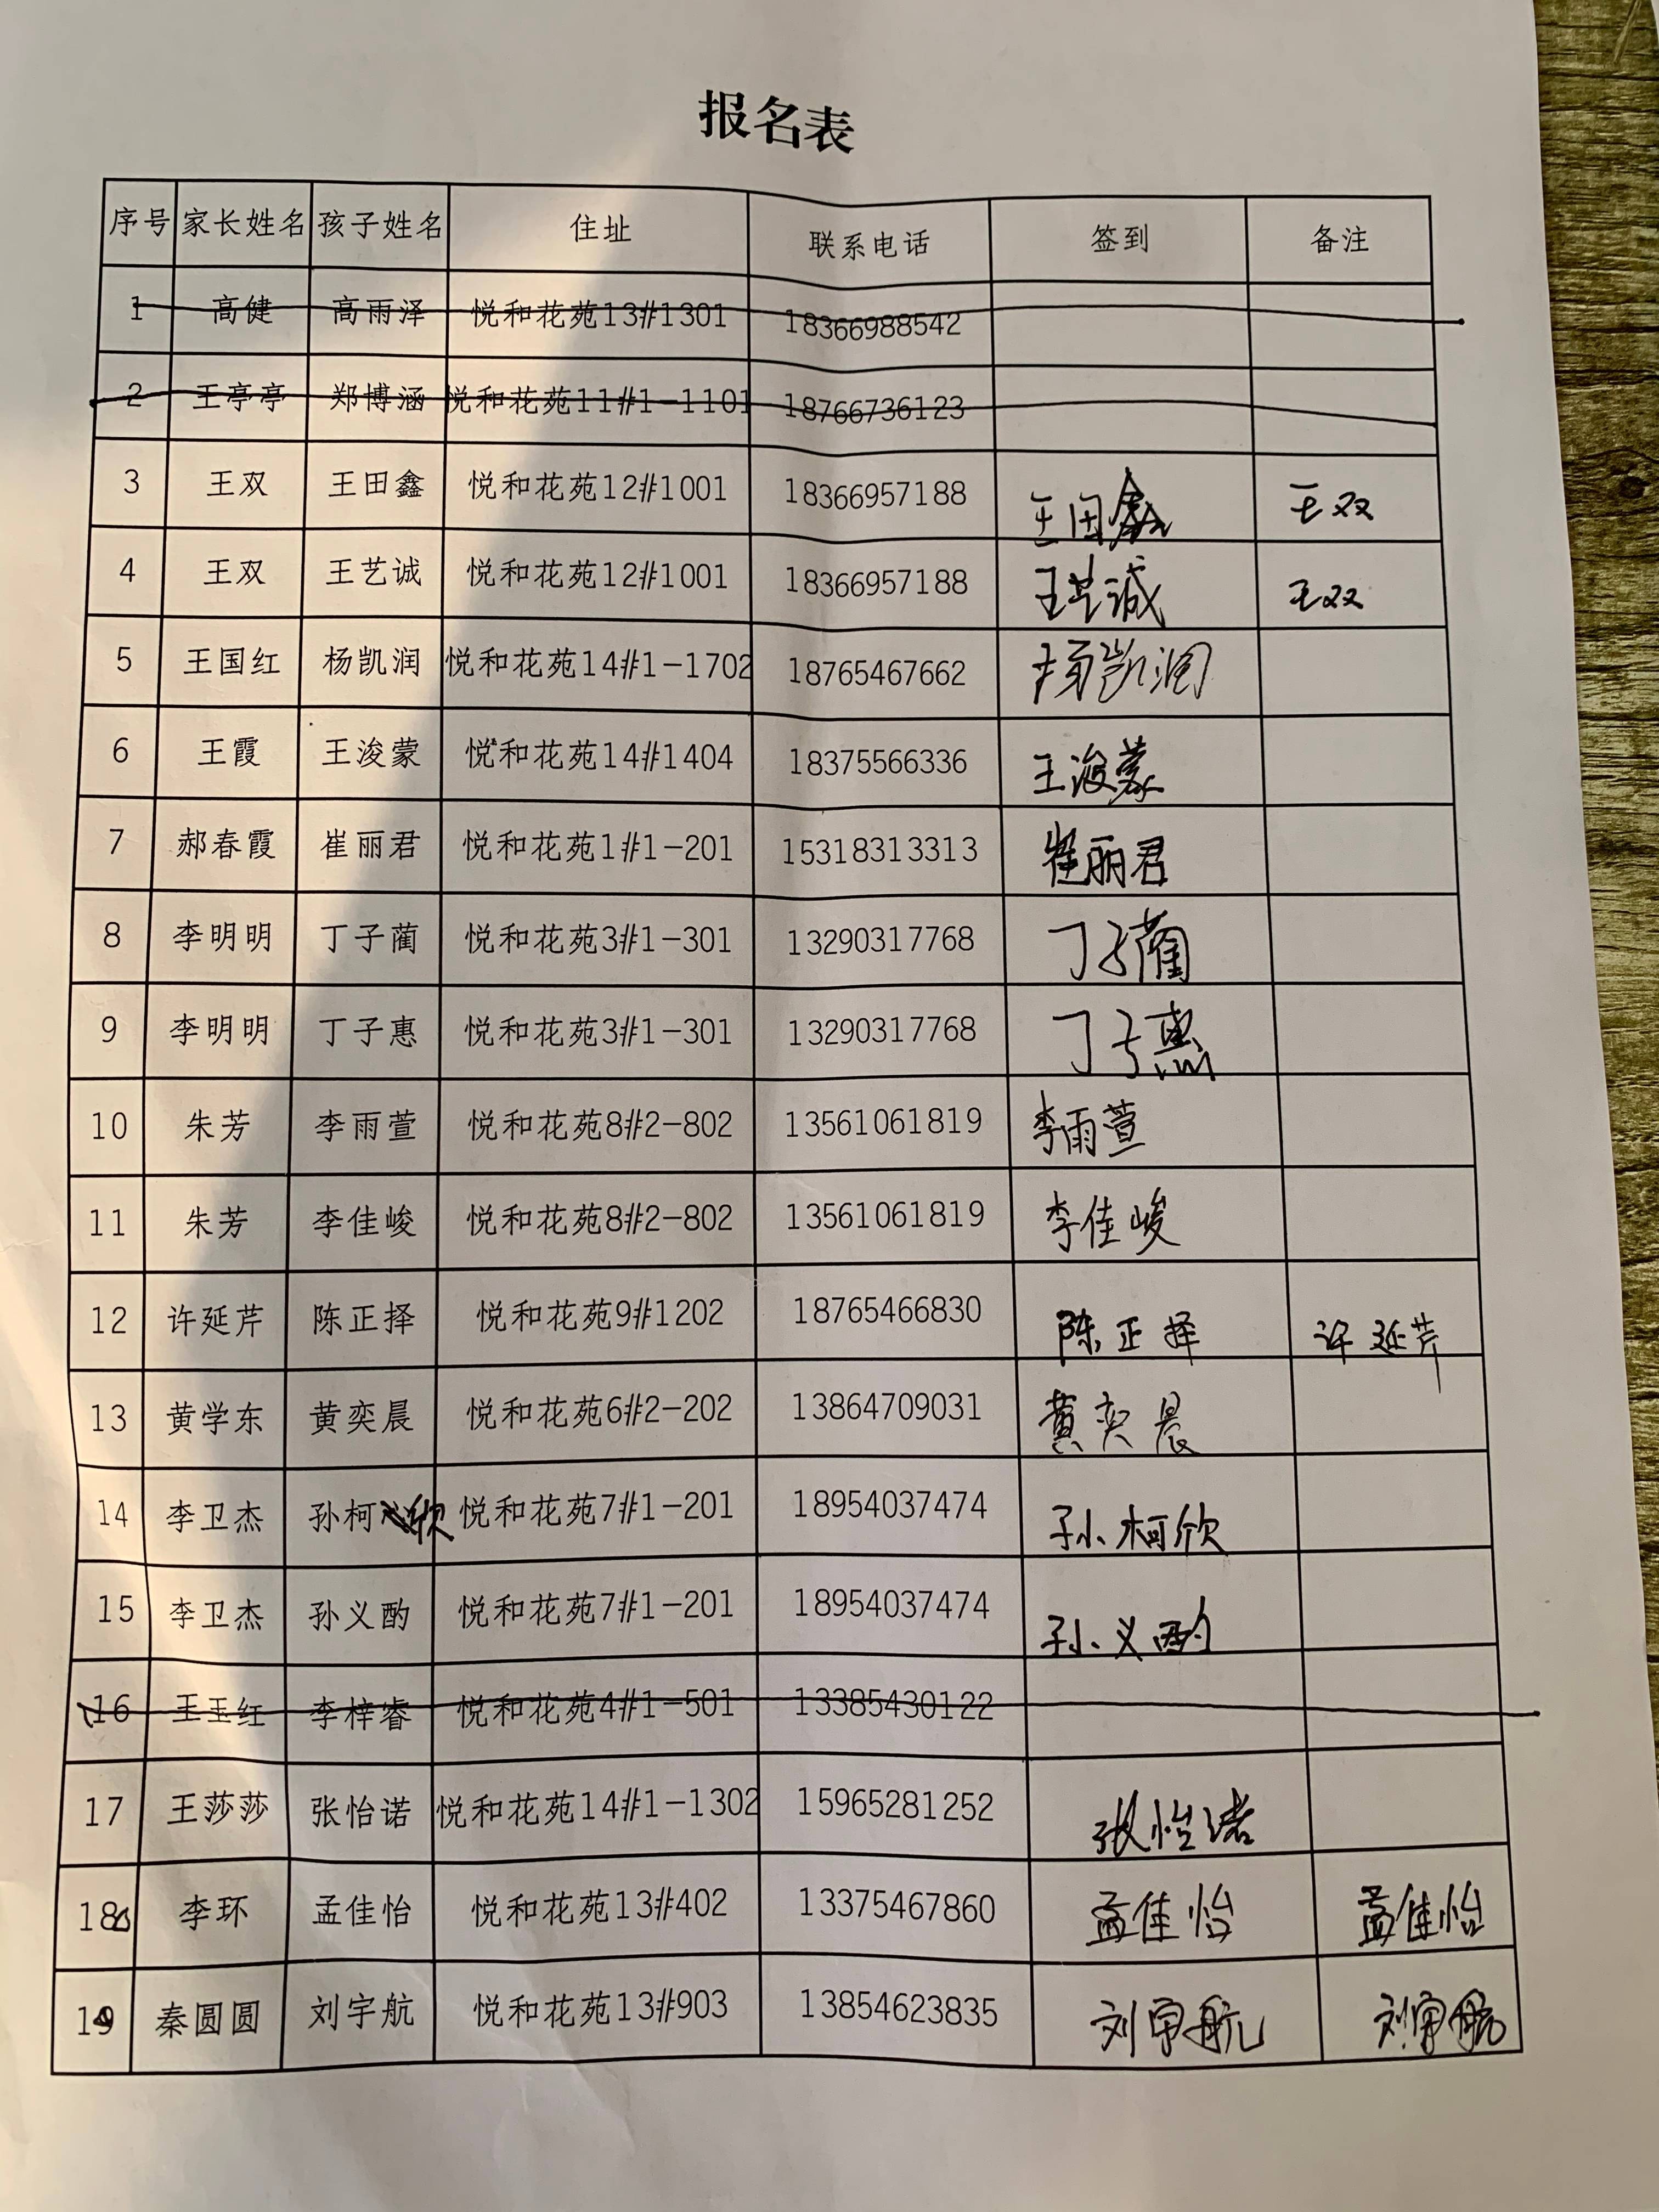 报名表
序号 家长姓名 孩子姓名 住址 联系电话 签到 备注
1 高健 高雨泽 悦和花苑13#1301 18366988542
2 王亭亭 郑博涵 悦和花苑11#1-1101 18766736123
3 王双 王田鑫 悦和花苑12#1001 18366957188 王田鑫 王双
4 王双 王艺诚 悦和花苑12#1001 18366957188 王艺诚 王双
5 王国红 杨凯润 悦和花苑14#1-1702 18765467662 杨凯润
6 王霞 王浚蒙 悦和花苑14#1404 18375566336 王浚蒙
7 郝春霞 崔丽君 悦和花苑1#1-201 15318313313 崔丽君
8 李明明 丁子蔺 悦和花苑3#1-301 13290317768 丁子蔺
9 李明明 丁子惠 悦和花苑3#1-301 13290317768 丁子惠
10 朱芳 李雨萱 悦和花苑8#2-802 13561061819 李雨萱
11 朱芳 李佳峻 悦和花苑8#2-802 13561061819 李佳峻
12 许延芹 陈正择 悦和花苑9#1202 18765466830 陈正择 许延芹
13 黄学东 黄奕晨 悦和花苑6#2-202 13864709031 黄奕晨
14 李卫杰 孙柯欣 悦和花苑7#1-201 18954037474 孙柯欣
15 李卫杰 孙义酌 悦和花苑7#1-201 18954037474 孙义酌
16 王玉红 李梓睿 悦和花苑4#1-501 13385430122
17 王莎莎 张怡诺 悦和花苑14#1-1302 15965281252 张怡诺
18 李环 孟佳怡 悦和花苑13#402 13375467860 孟佳怡 孟佳怡
19 秦圆圆 刘宇航 悦和花苑13#903 13854623835 刘宇航 刘宇航